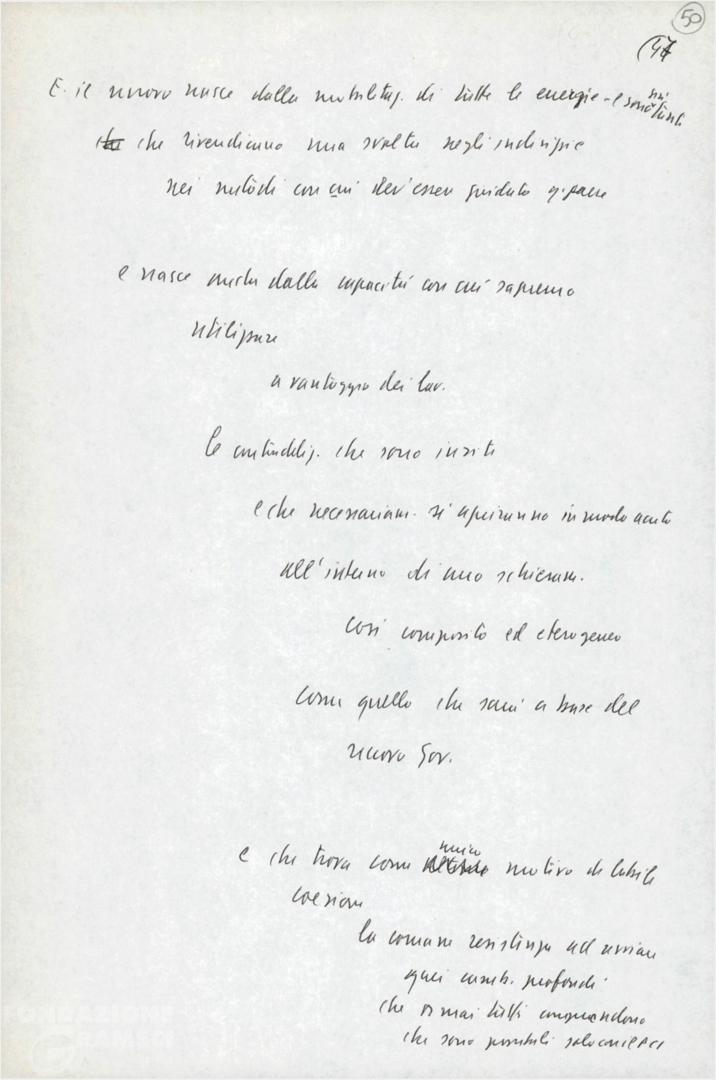 50
47
E il nuovo nasce dalla mobilitaz. di tutte le energie - e sono tanti
che che rivendicano una svolta negli indirizzi e
nei metodi con cui dev'essere guidato q. paese
e nasce anche dalla capacità con cui sapremo
utilizzare
a vantaggio dei lav.
le contraddiz. che sono insite
e che necessariam. si apriranno in modo acuto
all'interno di uno schieram.
così composito ed eterogeneo
come quello che sarà a base del
nuovo Gov.
unico
e che trova come motivo di labile
coesione
la comune resistenza ad avviare
quei camb. profondi
che ormai tutti comprendono
che sono possibili solo con il PCI
FONDAZIONE
GRAMSCI